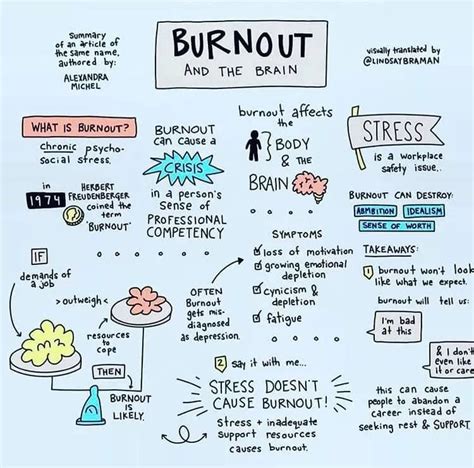 Summary
of an article of
the same name,
authored by:
ALEXANDRA
MICHEL
BURNOUT
AND THE BRAIN
visually translated by
@LINDSAYBRAMAN
WHAT IS BURNOUT?
chronic psycho-
social stress.
in
1974
HERBERT
FREUDENBERGER
coined the
term
'BURNOUT'
BURNOUT
can cause a
CRISIS
in a person's
sense of
PROFESSIONAL
COMPETENCY
burnout affects
the
BODY
& the
BRAIN
STRESS
is a workplace
safety issue.
BURNOUT CAN DESTROY:
AMBITION
IDEALISM
SENSE OF WORTH
IF
demands of
a job
>outweigh<
resources
to
cope
THEN
BURNOUT IS
LIKELY.
OFTEN
Burnout
gets mis-
diagnosed
as depression.
SYMPTOMS
loss of motivation
growing emotional
depletion
cynicism &
depletion
fatigue
2 say it with me...
STRESS DOESN'T
CAUSE BURNOUT!
Stress + inadequate
support resources
causes burnout.
TAKEAWAYS:
1 burnout won't look
like what we expect.
burnout will tell us:
I'm bad
at this
& I don't
even like
it or care
this can cause
people to abandon a
career instead of
seeking rest & SUPPORT